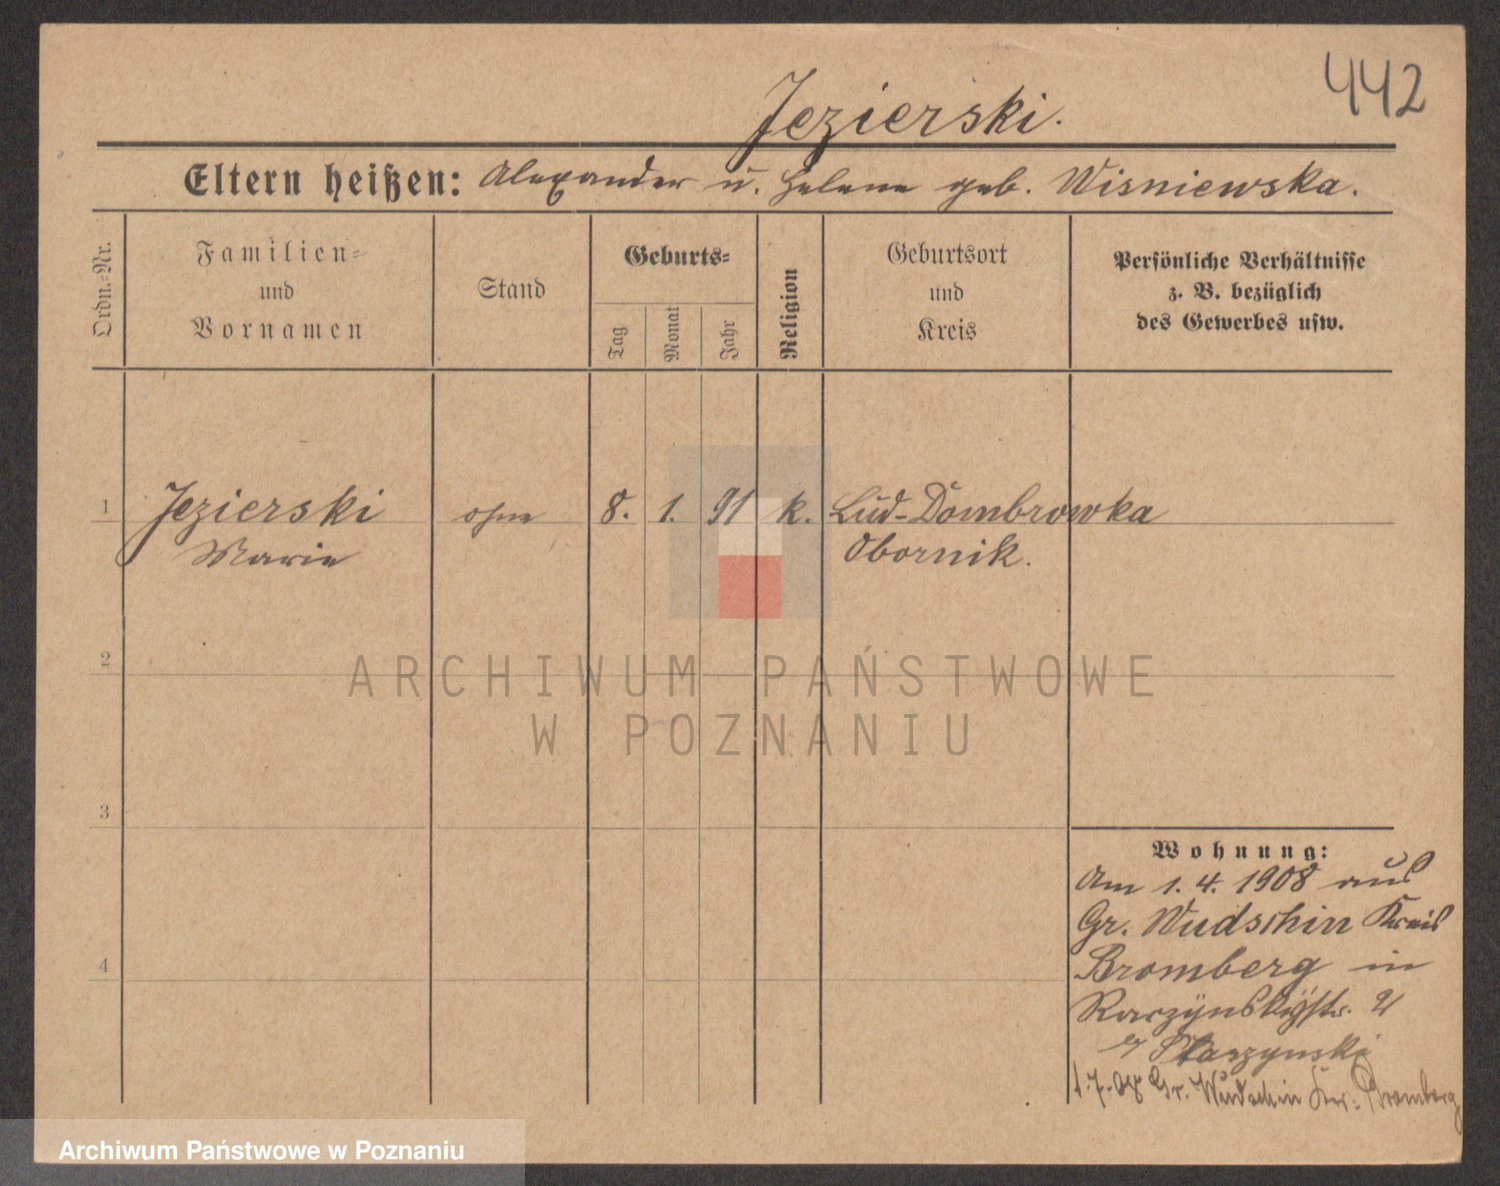 442
Jezierski.
Eltern heißen: Alexander u. Helene geb. Wisniewska.
Ordn.-Nr.
Familien-
und
Vornamen
Stand
Geburts-
Tag
Monat
Jahr
Religion
Geburtsort
und
Kreis
Persönliche Verhältnisse
z. B. bezüglich
des Gewerbes usw.
1 Jezierski ohne 8. 1. 91 k. Lud-Dombrowka
Marie Obornik.
2
ARCHIWUM PAŃSTWOWE
W POZNANIU
3
Wohnung:
Am 1. 4. 1908 aus
Gr. Wudschin Kreis
Bromberg in
4
Raczynskystr.
Staszynski
1.7.08 Gr. Wudschin Kr: Bromberg
Archiwum Państwowe w Poznaniu